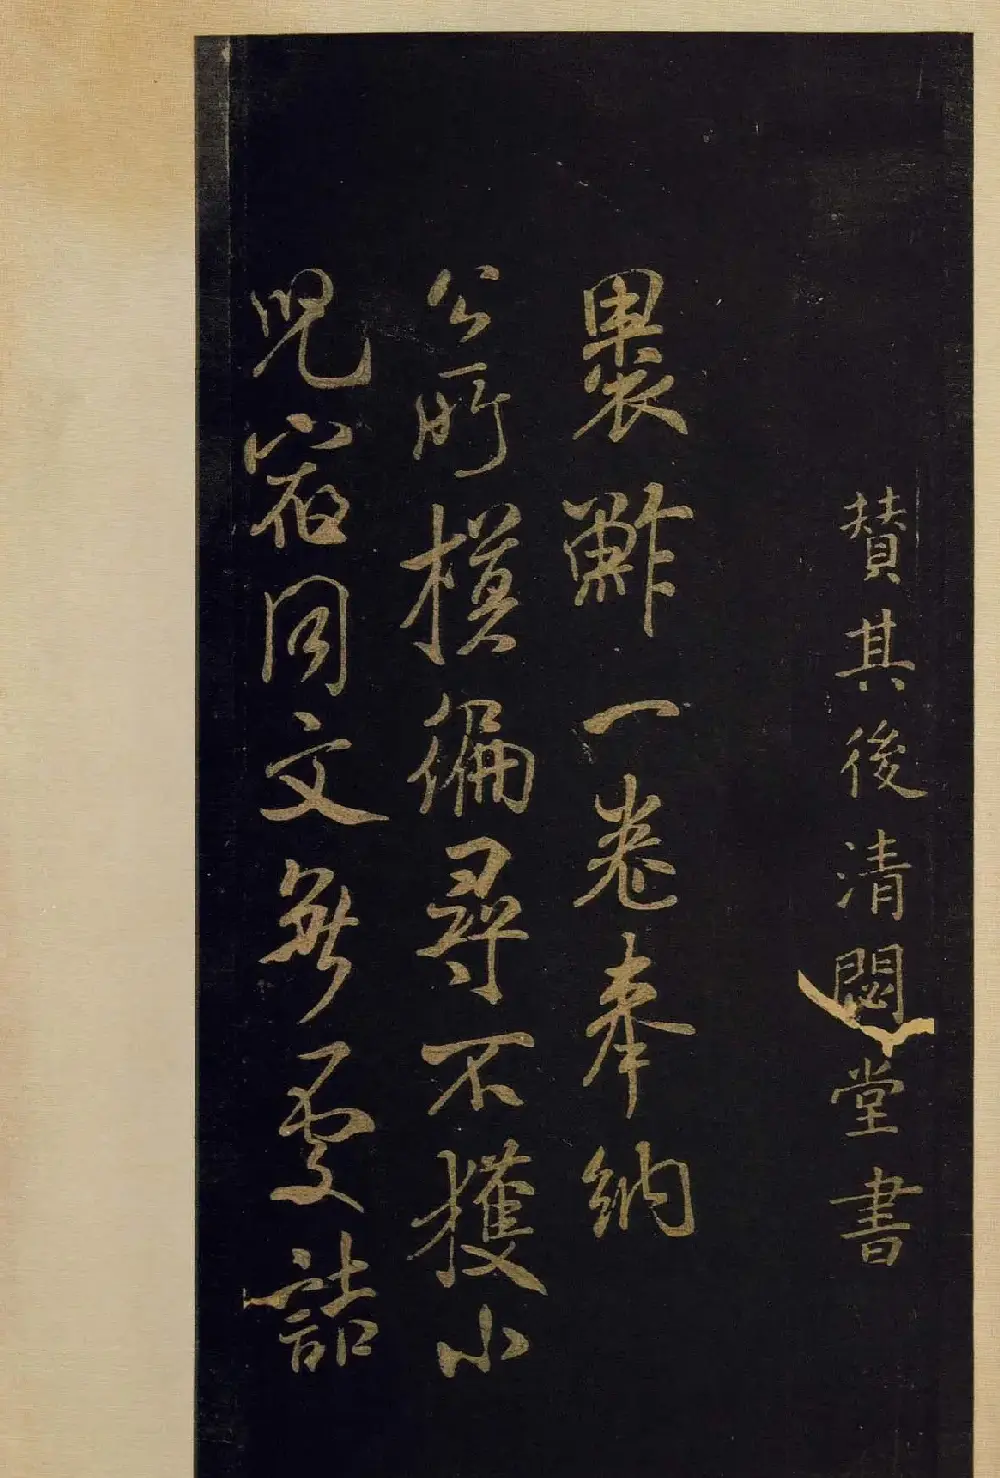 贊其後清閟堂書
裹鮓一卷奉納
公所模徧尋不獲小
兒宿同文無處詰